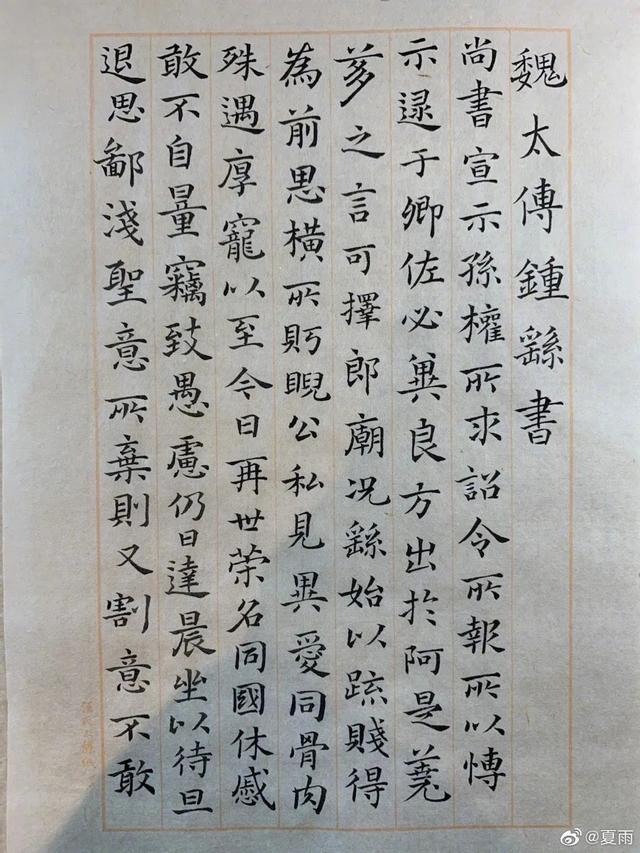 魏太傅鍾繇書
尚書宣示孫權所求詔令所報所以博
示逮于卿佐必冀良方出於阿是芻
蕘之言可擇郎廟況繇始以疏賤得
為前恩橫所眄睨公私見異愛同骨肉
殊遇厚寵以至今日再世榮名同國休慼
敢不自量竊致愚慮仍日達晨坐以待旦
退思鄙淺聖意所棄則又割意不敢
@夏雨